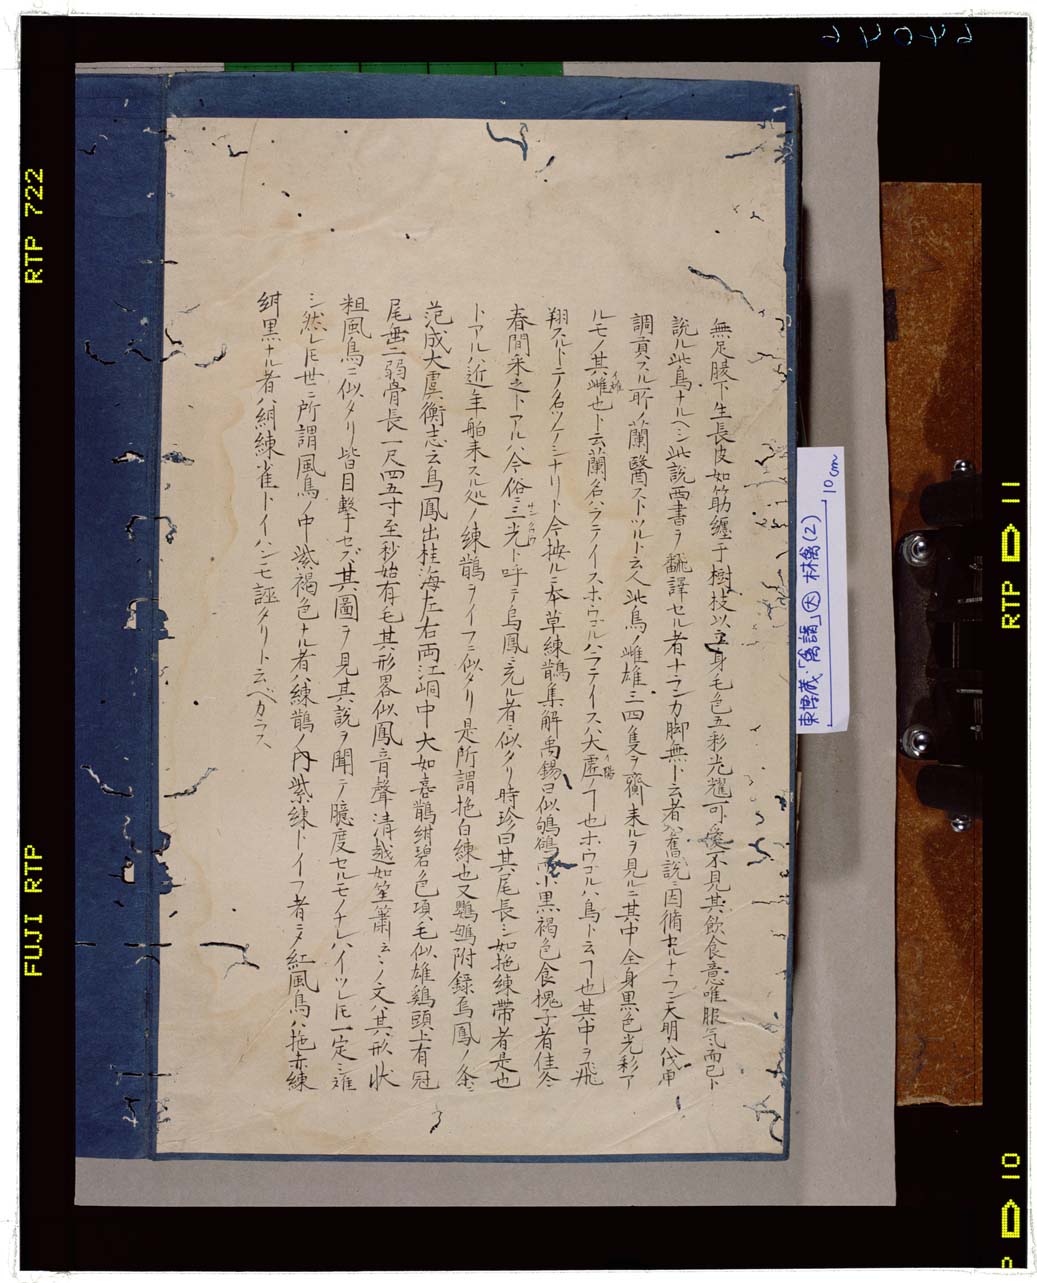 無足腹下生長皮如筋纏于樹枝以立身毛色五彩光耀可愛不見其飲食意唯服気而已ト
説ル此鳥ナルヘシ此説西書ヲ飜譯セル者ナランカ脚無ト云者ハ舊説ニ因循セルナラン天明戊申
調貢スル所ノ蘭醫ストツルト云人此鳥ノ雌雄三四隻ヲ齎来ルヲ見ルニ其中全身黒色光彩ア
ルモノ其雌也ト云蘭名ハラテイスホウゴルハラテイスハ大虚ノヿ也ホウゴルハ鳥ト云ヿ也其中ヲ飛
翔スルトテ名ツケシナリト今按ルニ本草練鵲集解禹錫曰似鴝鵒而小黒褐色食槐子者佳冬
春間采之トアルハ今俗ニ三光ト呼テ烏鳳ニ充ル者ニ似タリ時珍曰其尾長シ如拖練帯者是也
トアルハ近年舶来スル処ノ練鵲ヲイフニ似タリ是所謂拖白練也又鸚鴝附録烏鳳ノ条ニ
范成大虞衡志云烏鳳出桂海左右両江峒中大如喜鵲紺碧色項毛似雄鶏頭上有冠
尾垂二弱骨長一尺四五寸至杪始有毛其形畧似鳳音聲清越如笙簫云々ノ文ハ其形状
粗風鳥ニ似タリ皆目撃セズ其圖ヲ見其説ヲ聞テ臆度セルモノナレハイツレ𪜈一定シ難
シ然レ𪜈世ニ所謂風鳥ノ中紫褐色ナル者ハ練鵲ノ内紫練トイフ者ニタ紅風鳥ハ拖赤練
紺黒ナル者ハ絹練雀トイハンモ誣タリト云ベカラス
東博蔵「禽譜」㊅ 林禽(2)
10cm
RTP 722
FUJI RTP
RTP 11
10